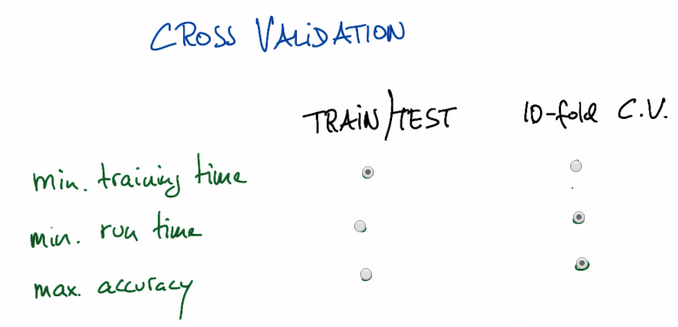 CROSS VALIDATION
TRAIN/TEST 10-fold C.V.
min. training time
min. run time
max. accuracy